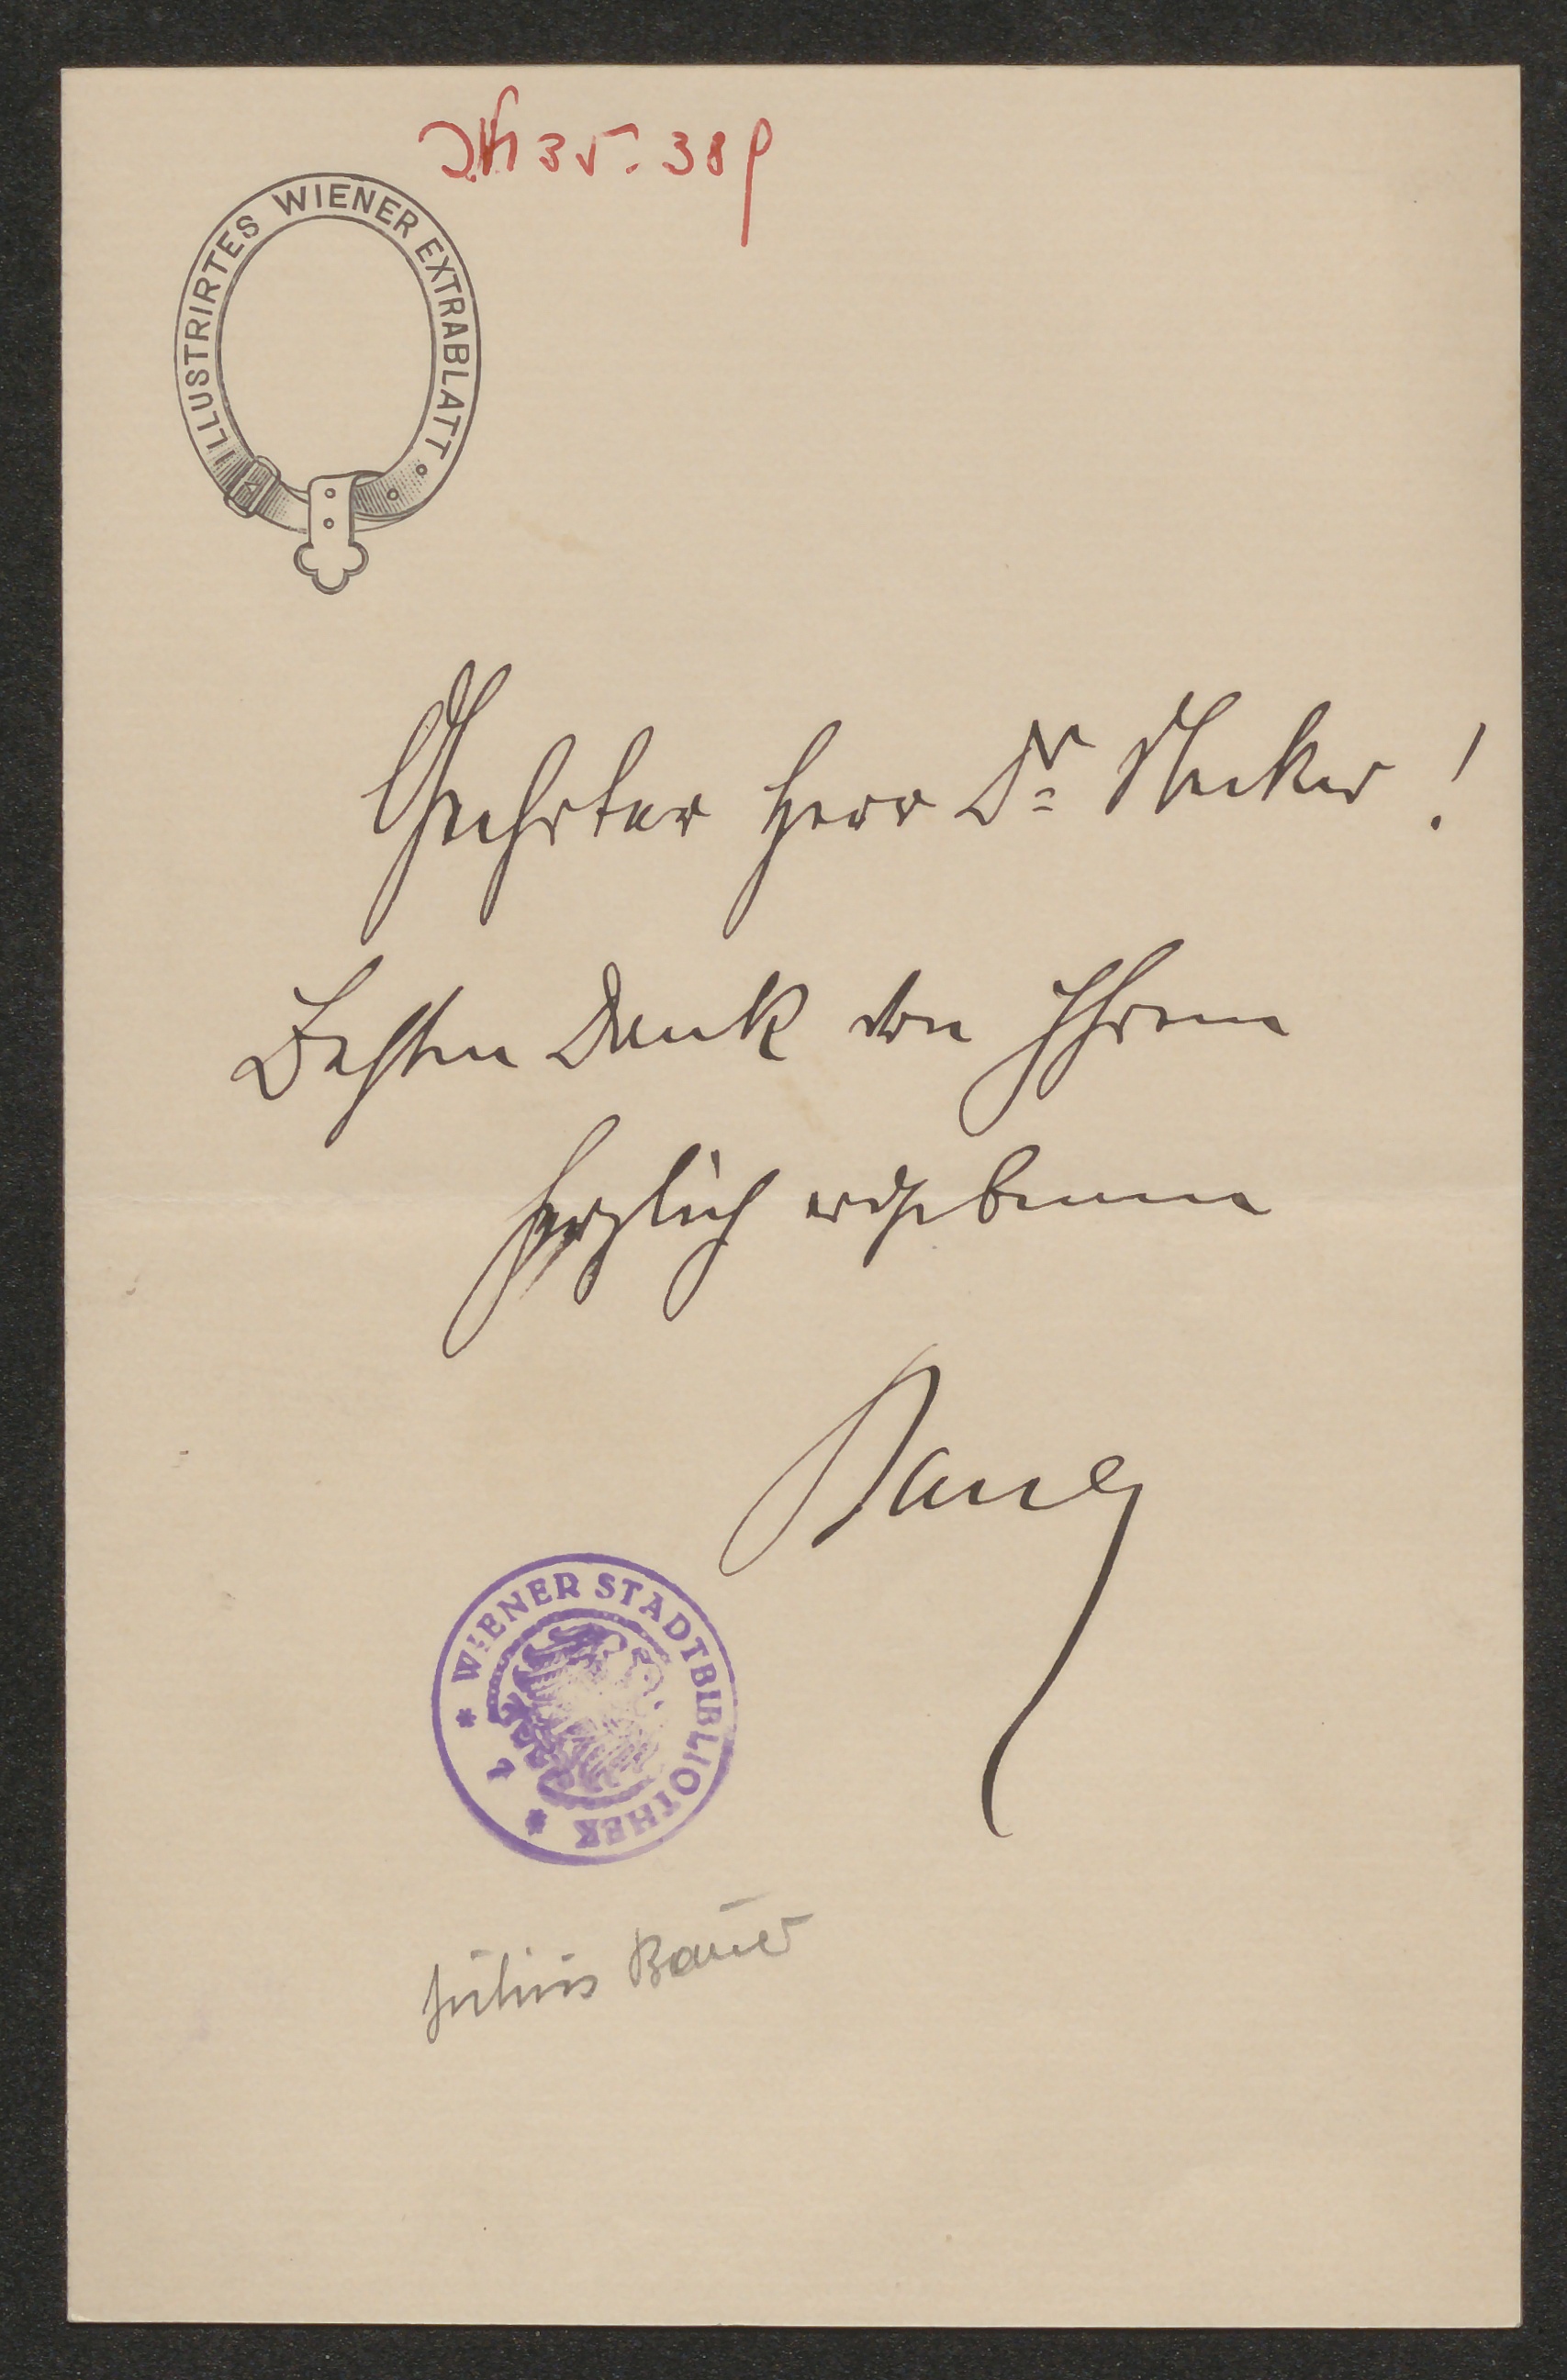 38 p
ILLUSTRIRTES WIENER EXTRABLATT
Geehrter Herr Dr
Besten Dank von Ihrem
herzlich ergebenen
Bauer
WIENER STADTBIBLIOTHEK
Julius Bauer